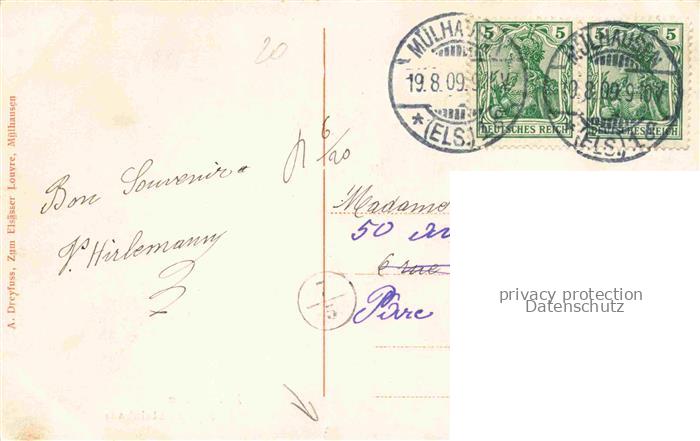 20
5 5 5
MÜLHAUSEN
19.8.09.9
* (ELS.) 1
MÜLHAUSEN
19.8.09.9-
(ELS.) 1
DEUTSCHES REICH DEUTSCHES REICH
6/20
Bon Souvenir
P. Hirlemann
Madame
50
6 rue
privacy protection
Datenschutz
A. Dreyfuss, Zum Elsässer Louvre, Mülhausen